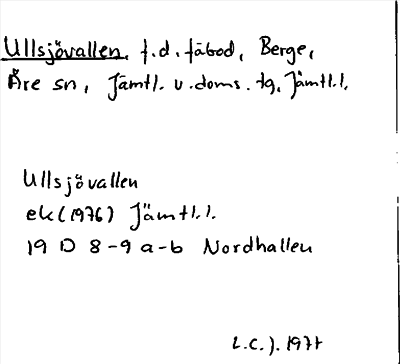 Ullsjövallen, f.d. fäbod, Berge,
Åre sn, Jämtl. v. doms. tg, Jämtl.l.
Ullsjövallen
ek (1976) Jämtl.l.
19 D 8-9 a-b Nordhallen
L.C.J. 1977